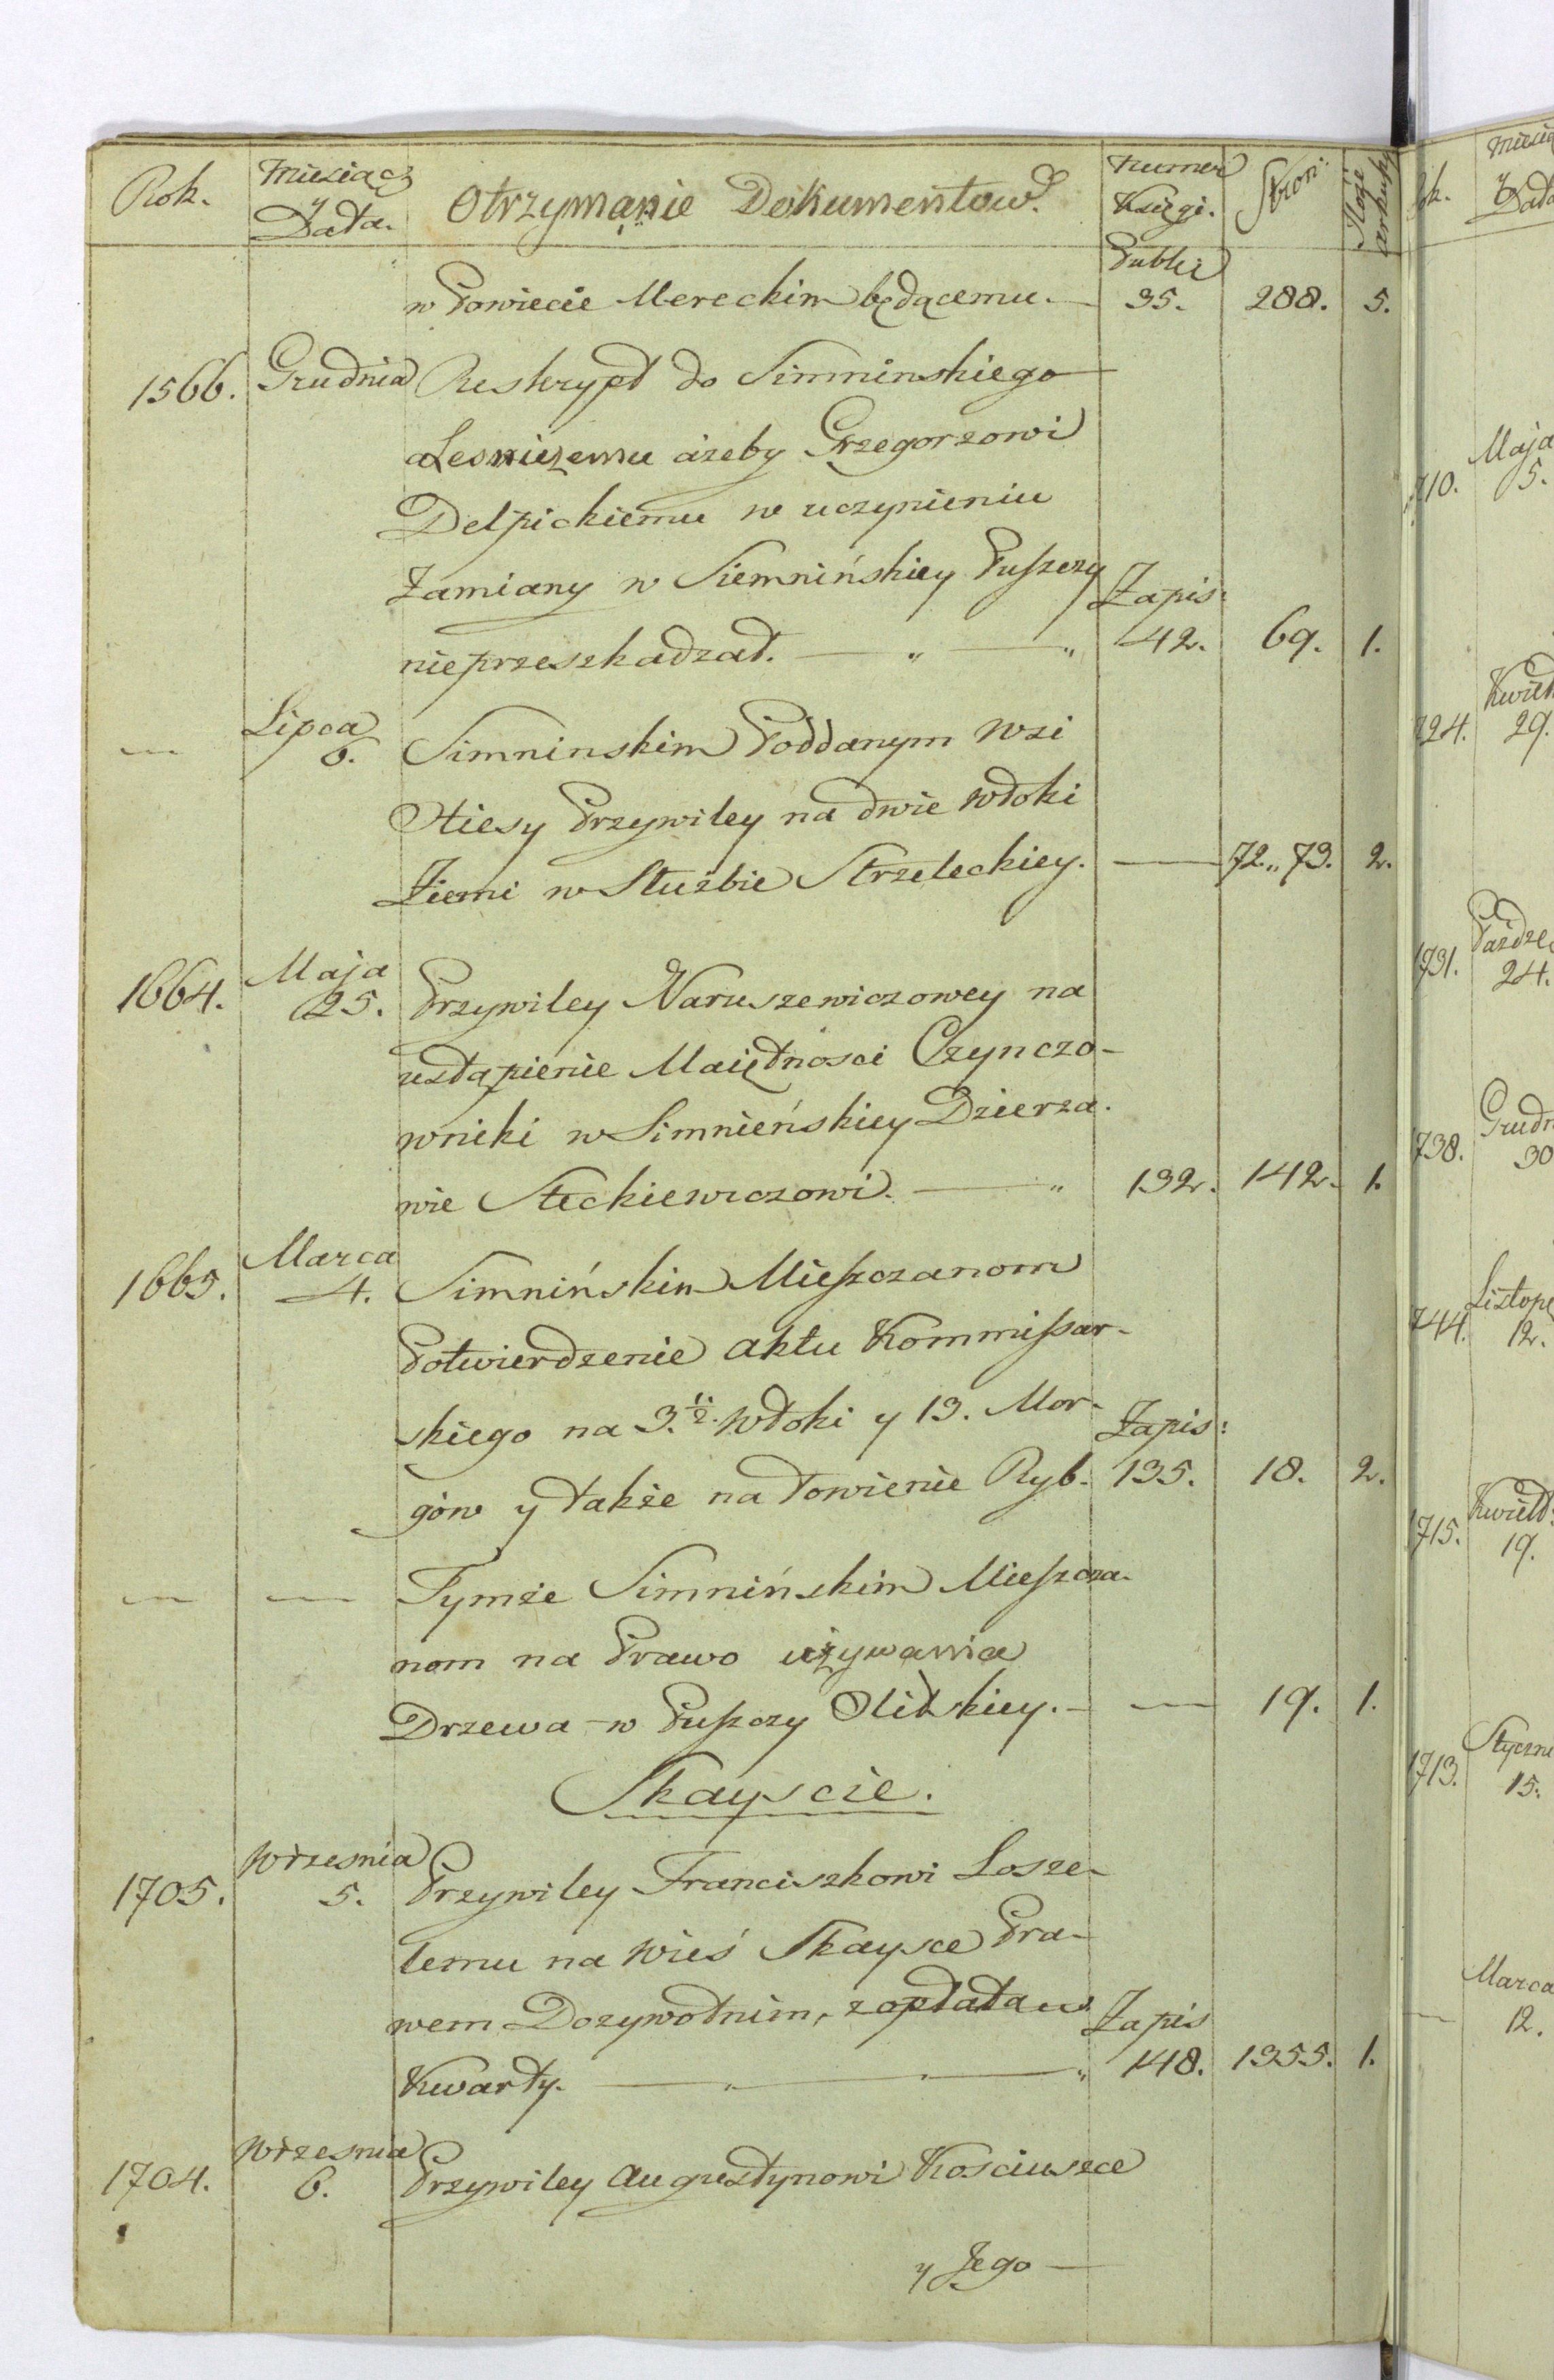 Rok. Miesiącz y Data. Otrzymanie Dokumentow. Numer Księgi. Stron: Ilość arkuszy
w Powiecie Mereckim będącemu. — Public 35. 288. 5.
1566. Grudnia Reskrypt do Simninskiego
Lesniczemu ażeby Grzegorzowi
Delpickiemu w uczynieniu
Zamiany w Siemnińskiey Puszczy
nieprzeszkadzał. — " — " Zapis: 42. 69. 1.
— Lipca 6. Simninskim Poddanym wsi
Otiesy Przywiley na dwie włoki
Ziemi w Służbie Strzeleckiey. — 72.,, 73. 2.
1664. Maja 25. Przywiley Naruszewiczowey na
ustąpienie Maiętnosci Czynczo-
wniki w Simnieńskiey Dzierza-
wie Steckiewiczowi. — " 132. 142. 1.
1665. Marca 4. Simnińskim Mieszczanom
Potwierdzenie aktu Kommissar-
skiego na 3. ½. włoki y 13. Mor-
gów y także na łowienie Ryb. Zapis: 135. 18. 2.
— — Tymże Simnińskim Mieszcza-
nom na Prawo używania
Drzewa w Puszczy Olitskiey. — — 19. 1.
Skayscie.
1705. Wrzesnia 5. Przywiley Franciszkowi Losze-
temu na wieś Skaysce Pra-
wem Dozywotnim, z opłatą
Kwarty. — " — " — " Zapis 148. 1355. 1.
1704. Wrzesnia 6. Przywiley Augustynowi Kosciuszce
y Jego —
710. Maja 5.
724. 29.
1731. 24.
1738. 30
744. 12.
1715. 19.
1713. 15.
— Marca 12.